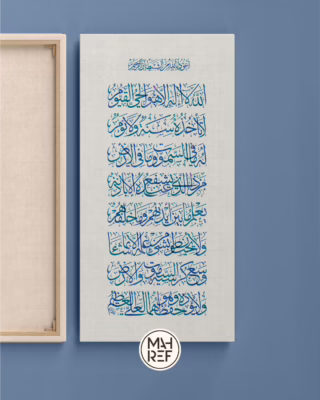 أعوذ بالله من الشيطان الرجيم
الله لا إله إلا هو الحي القيوم
لا تأخذه سنة ولا نوم
له ما في السموات وما في الأرض
من ذا الذي يشفع عنده إلا بإذنه
يعلم ما بين أيديهم وما خلفهم
ولا يحيطون بشيء من علمه إلا بما شاء
وسع كرسيه السموات والأرض
ولا يؤده حفظهما وهو العلي العظيم
MAH
REF